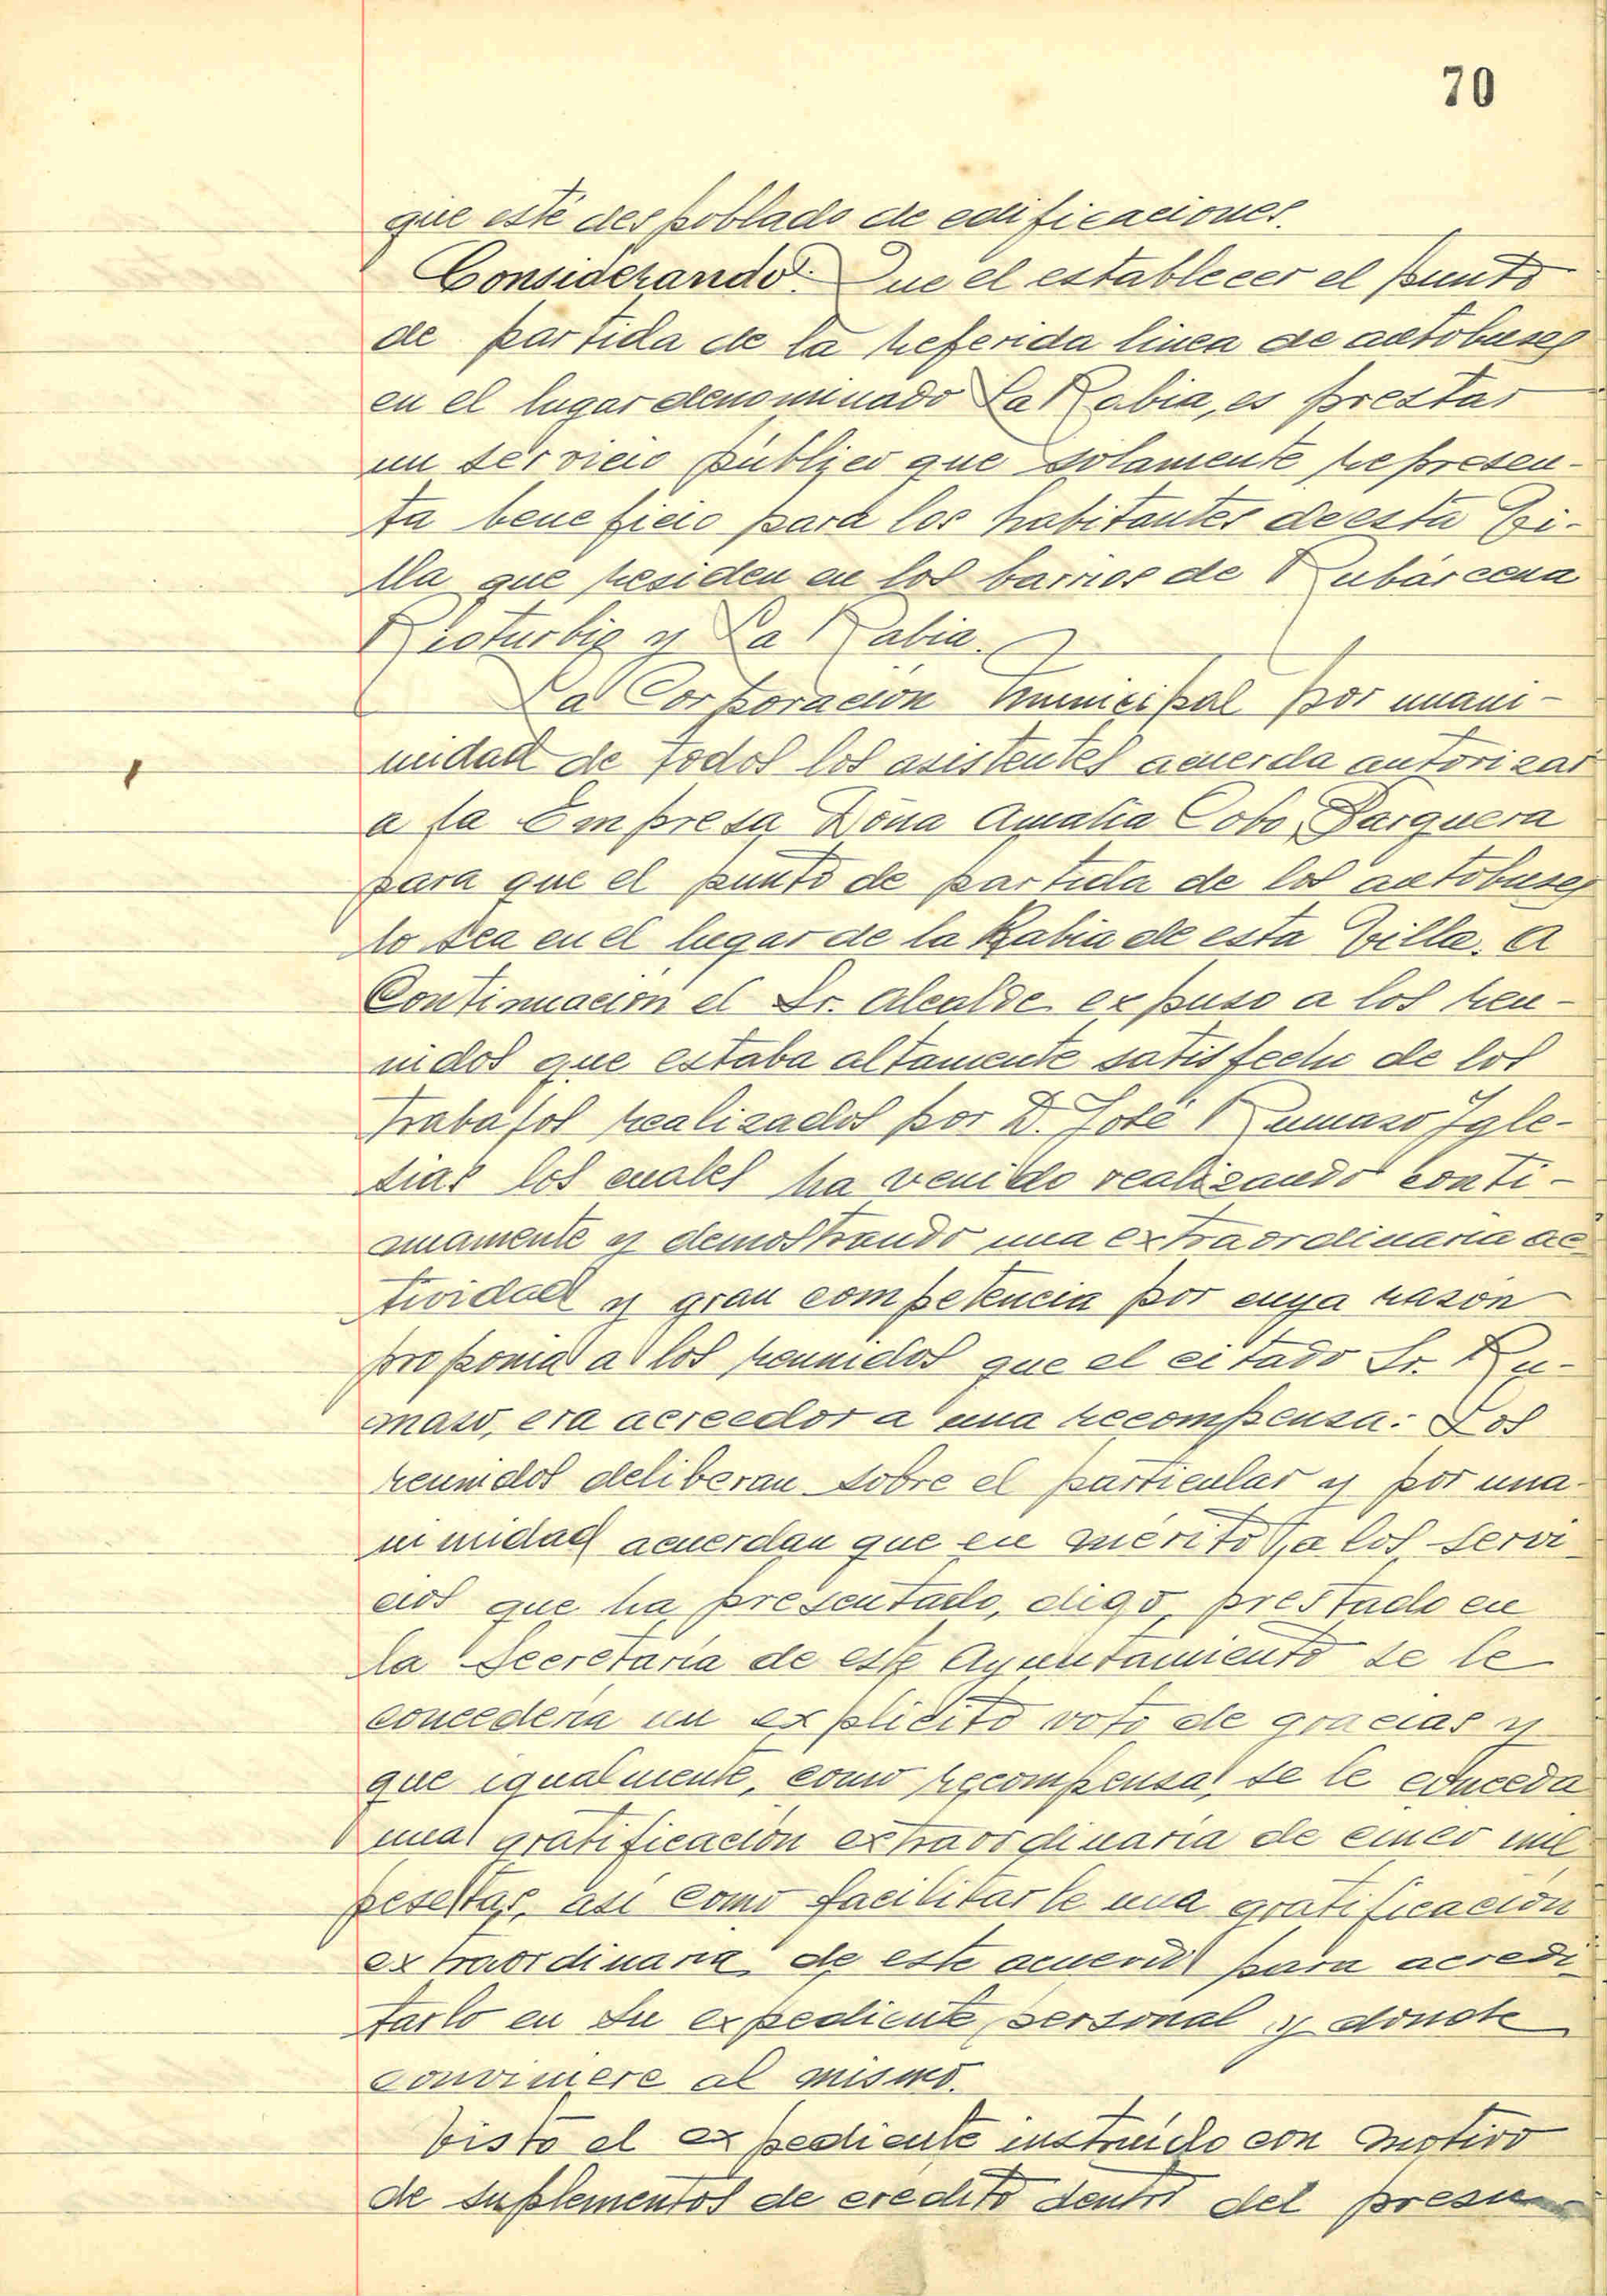 70
que esté despoblado de edificaciones.
Considerando: Que el establecer el punto
de partida de la referida linea de autobuses
en el lugar denominado La Rabia, es prestar
un servicio público que solamente represen-
ta beneficio para los habitantes de esta Vi-
lla que residen en los barrios de Rubárcena
Rioturbio y La Rabia.
La Corporación Municipal por unani-
midad de todos los asistentes acuerda autorizar
a la Empresa Doña Amalia Cobo Barquera
para que el punto de partida de los autobuses
lo sea en el lugar de la Rabia de esta Villa. A
Continuación el Sr. Alcalde expuso a los reu-
nidos que estaba altamente satisfecho de los
trabajos realizados por D. José Rumazo Igle-
sias los cuales ha venido realizando conti-
nuamente y demostrando una extraordinaria ac
tividad y gran competencia por cuya razón
proponia a los reunidos que el citado Sr. Ru-
mazo, era acreedor a una recompensa. Los
reunidos deliberan sobre el particular y por una-
nimidad acuerdan que en mérito a los servi
cios que ha presentado, digo, prestado en
la Secretaría de este Ayuntamiento se le
concedería un explicito voto de gracias y
que igualmente, como recompensa, se le conceda
una gratificación extraordinaria de cinco mil
pesetas, así como facilitarle una gratificación
extraordinaria de este acuerdo para acredi
tarlo en su expediente personal y donde
conviniere al mismo.
Visto el expediente instruído con motivo
de suplementos de crédito dentro del presu-